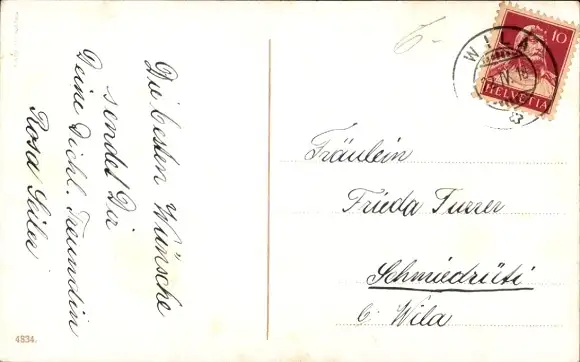 Die besten Wünsche
sendet Dir
Deine Dichl. Freundin
Rosa Seiler
4834.
6-
WILA
10
HELVETIA
Fräulein
Frieda Furrer
Schmiedrüti
b. Wila